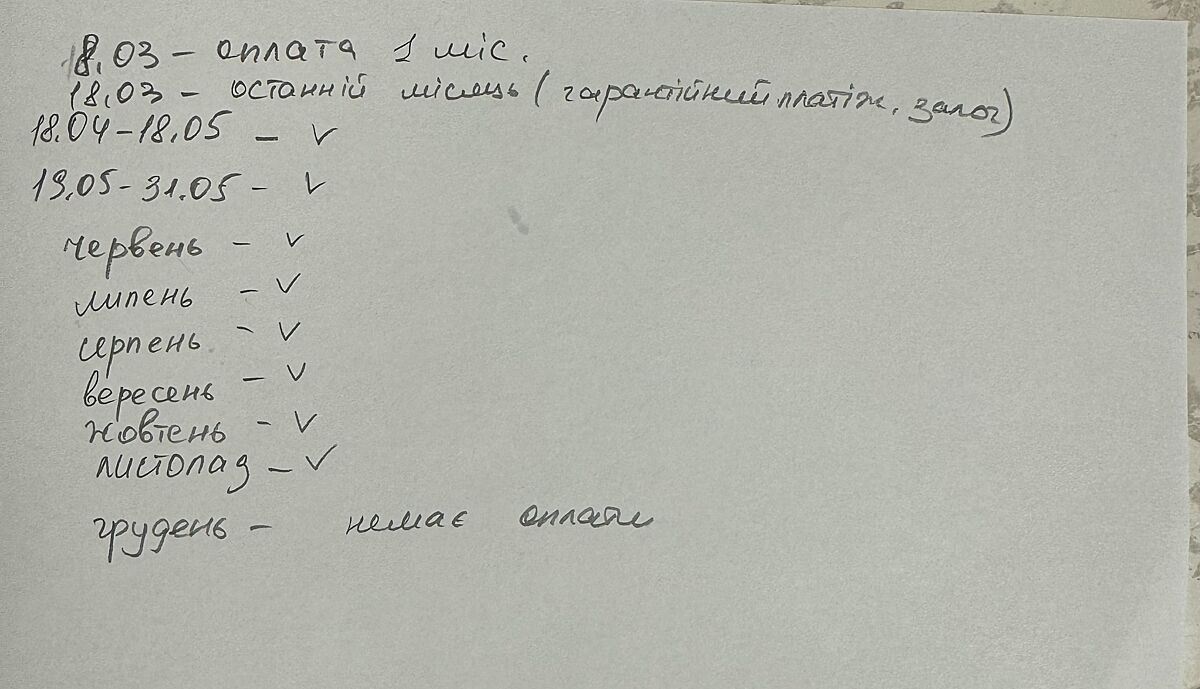 18.03 - оплата 1 міс.
18.03 - останній місяць (гарантійний платіж, залог)
18.04-18.05 - ✓
19.05-31.05 - ✓
червень - ✓
липень - ✓
серпень - ✓
вересень - ✓
жовтень - ✓
листопад - ✓
грудень - немає оплати